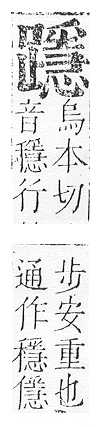 烏本切
音穩行
步安重也
通作穩